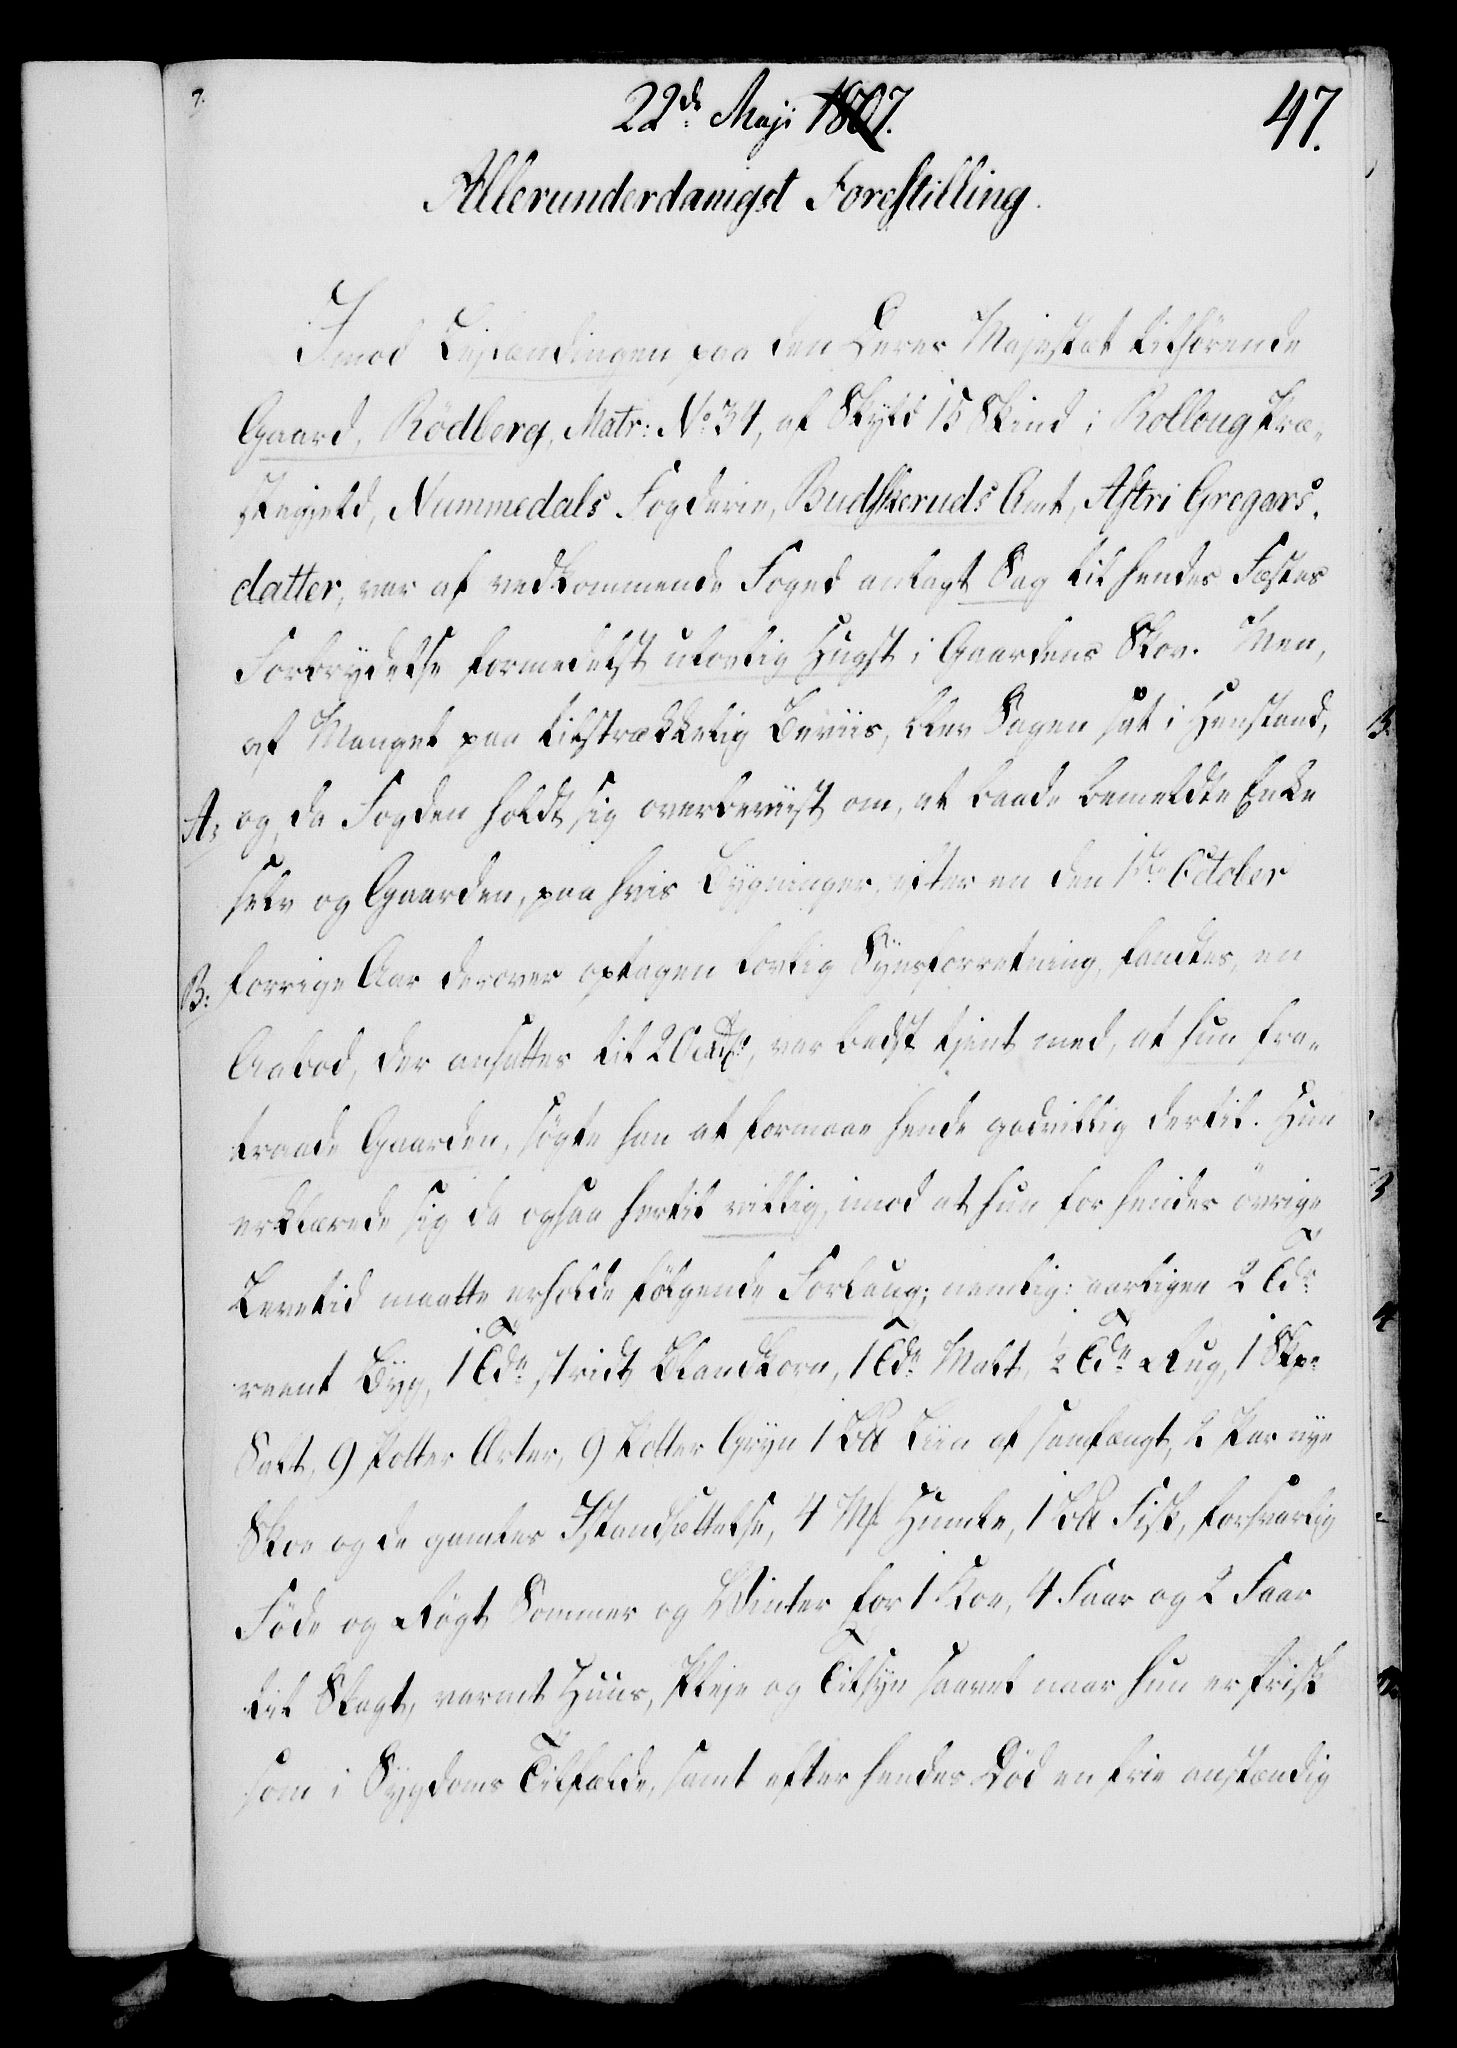 22de Maji 1807.
47.
Allerunderdanigst Forestilling.
Imod Leilændingen paa den Deres Majestæt tilhørende
Gaard, Rödberg, Matr: No 34, af Skyld 15 Skind i Rolloug Præ-
stegield, Nummedals Fogderie, Budskeruds Amt, Astri Gregers-
datter, var af vedkommende Foged anlagt Sag til hendes Fæstes
Forbrydelse formedelst ulovlig Hugst i Gaardens Skov. Men,
af Mangel paa tilstrækkelig Beviis, blev Sagen sat i Henstand,
A: og, da Fogden holdt sig overbeviist om, at baade bemeldte Enke
selv og Gaarden, paa hvis Bygninger, efter en den 1de October
B: forrige Aar derover optagen lovlig Synsforretning, fandtes en
Aabod, der ansattes til 20 rdlr, var bedst tjent med, at hun fra-
traade Gaarden, søgte han at formaae hende godvillig dertil. Hun
erklærede sig da ogsaa hertil villig, imod at hun for hendes övrige
Levetid maatte erholde følgende Forlaug; nemlig: aarligen 2 Tdr
reent Byg, 1 Tde stridt Blandkorn, 1 Tde Malt, ½ Tde Rug, 1 Skp
Salt, 9 Potter Erter, 9 Potter Gryn 1 Bpd Liin af samfængt, 2 Par nye
Skoe og de gamles Istandsættelse, 4 Mk Humle, 1 Bpd Fisk, forsvarlig
Föde og Røgt Sommer og Winter for 1 Koe, 4 Faar og 2 Faar
til Slagt, varmt Huus, Pleje og Tilsyn saavel naar hun er frisk
som i Sygdoms Tilfælde, samt efter hendes Död en frie anstændig